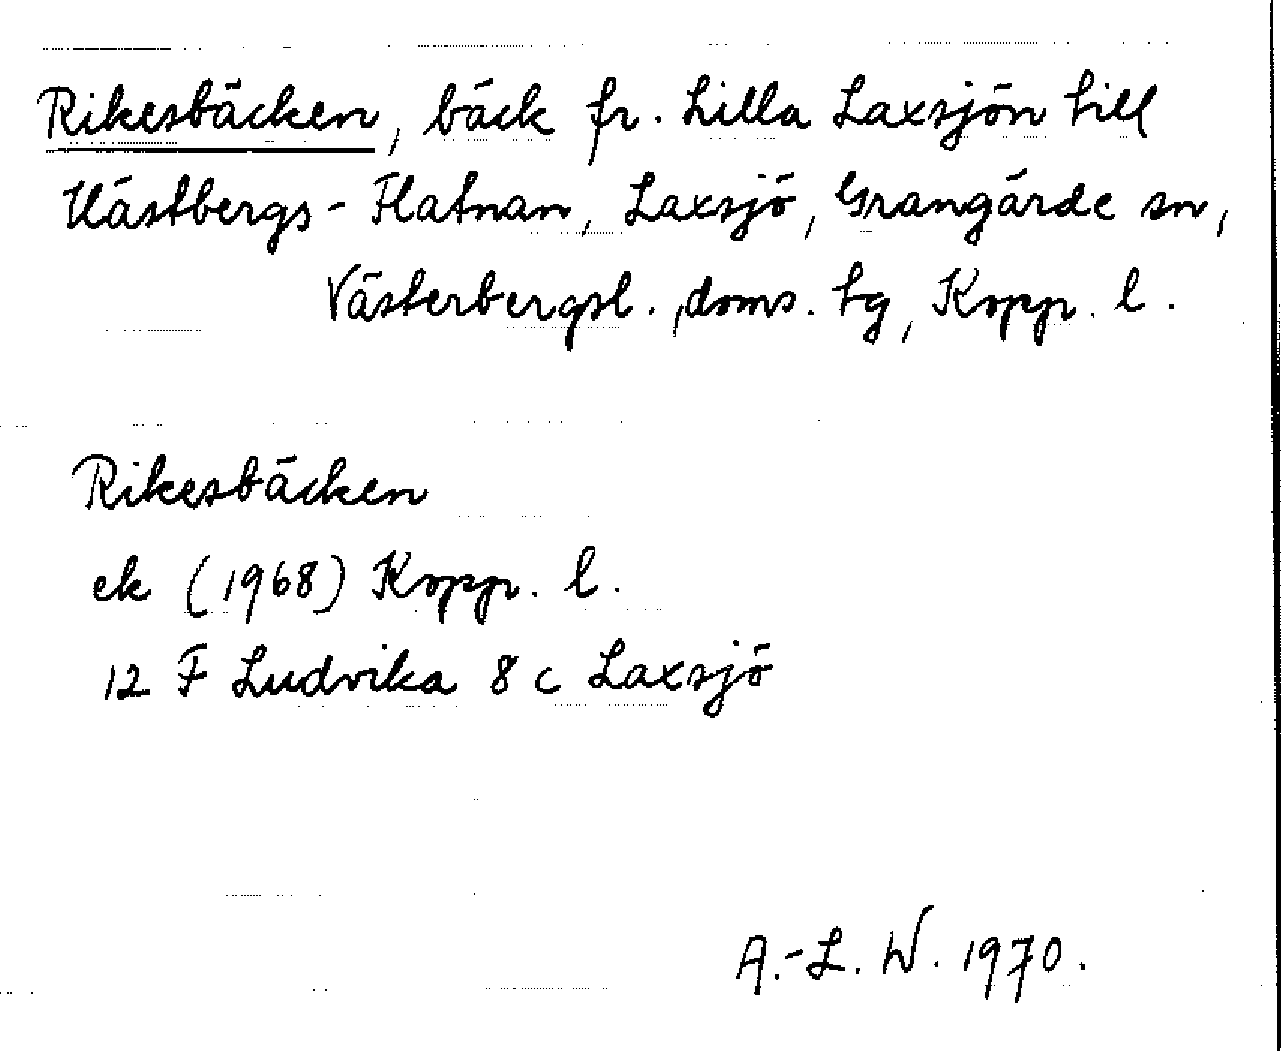 Rikesbäcken, bäck fr. Lilla Laxsjön till
Hästbergs-Flatnan, Laxsjö, Grangärde sn,
Västerbergsl., doms. tg, Kopp. l.
Rikesbäcken
ek (1968) Kopp. l.
12 F Ludvika 8 c Laxsjö
A.-L. W. 1970.